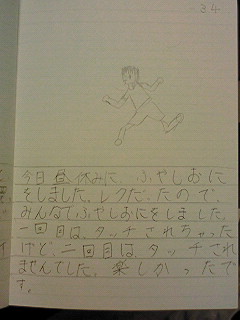 34
今日昼休みに、ふやしおに
をしました。レクだったので、
みんなでふやしおにをしました。
一回目は、タッチされちゃった
けど、二回目は、タッチされ
ませんでした。楽しかったで
す。